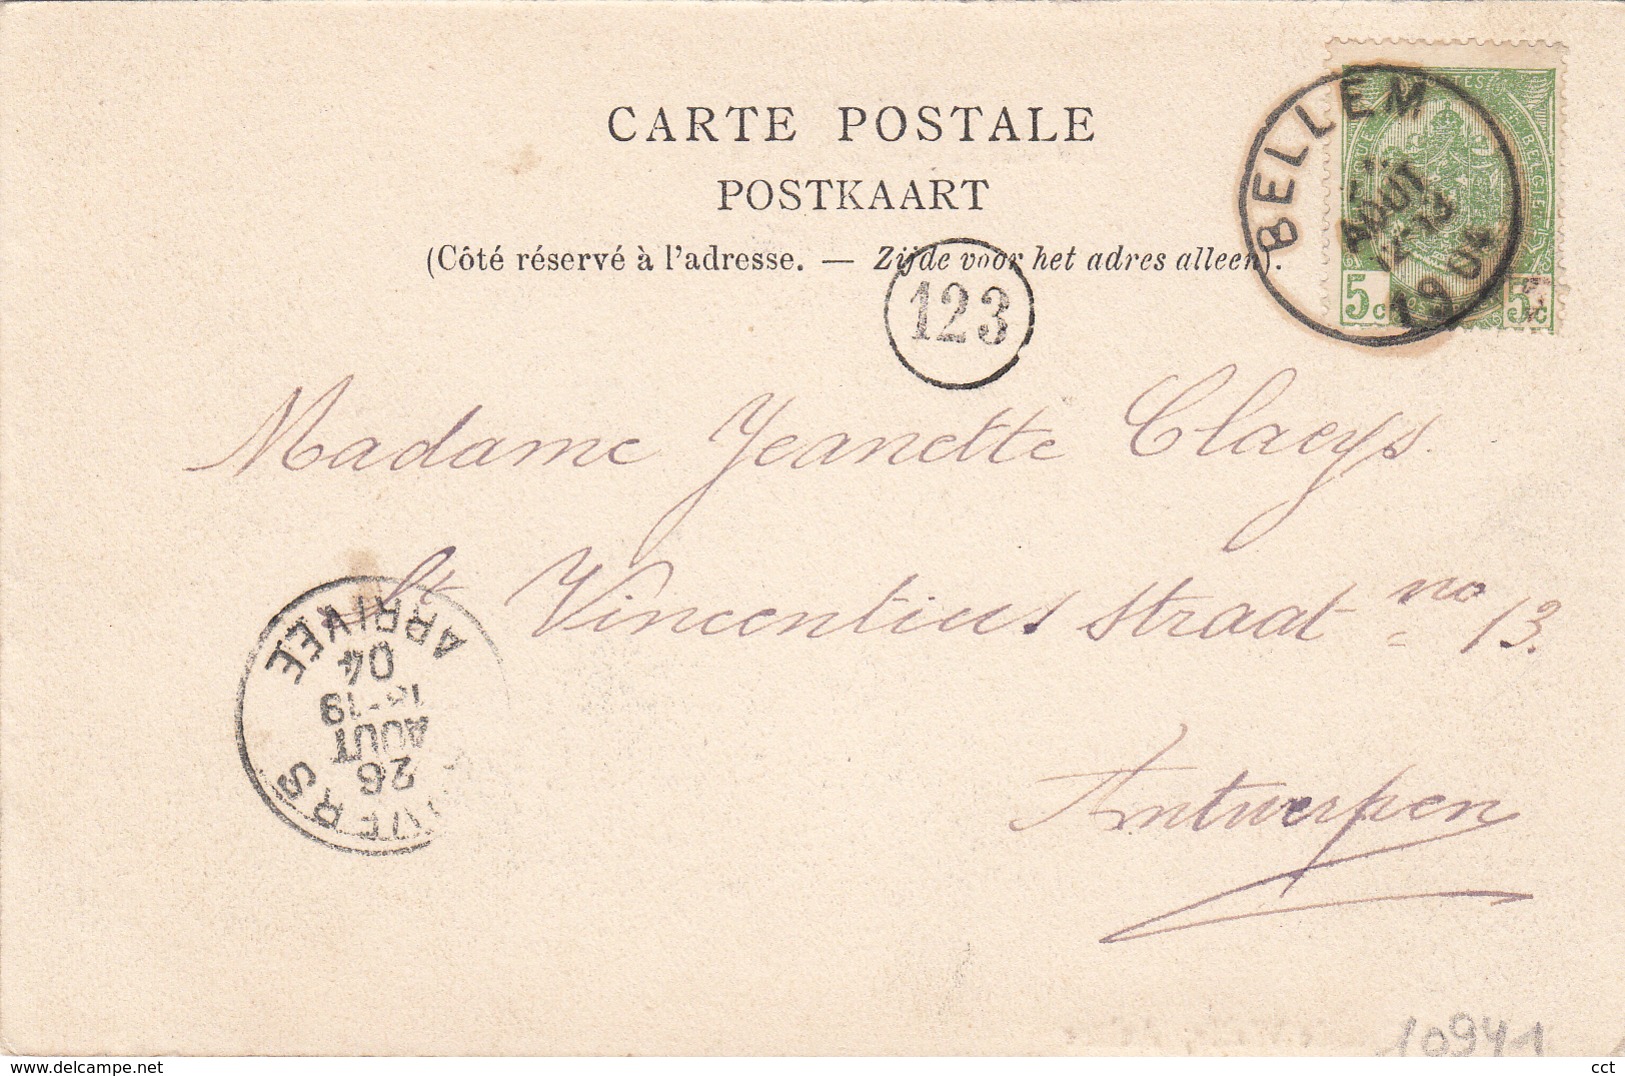 CARTE POSTALE
POSTKAART
(Côté réservé à l'adresse. — Zijde voor het adres alleen).
BELLEM
AOUT
12-13
1904
5c 5c
123
Madame Jeanette Claeys.
St Vincentius straat no 13.
Antwerpen
ARRIVÉE
04
18-19
AOUT
26
10941
delcampe.net
cct